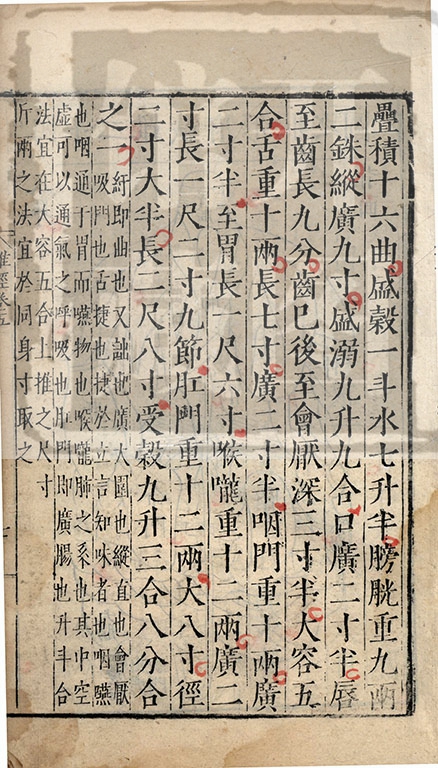 疊積十六曲盛穀一斗水七升半膀胱重九兩
二銖縱廣九寸盛溺九升九合口廣二寸半唇
至齒長九分齒已後至會厭深三寸半大容五
合舌重十兩長七寸廣二寸半咽門重十兩廣
二寸半至胃長一尺六寸喉嚨重十二兩廣二
寸長一尺二寸九節肛門重十二兩大八寸徑
二寸大半長二尺八寸受穀九升三合八分合
之一
紆即曲也又詘也廣大圍也縱直也會厭
吸門也舌捷也捷於立言知味者也咽嚥
也咽通于胃而嚥物也喉嚨肺之系也其中空
虛可以通氣之呼吸也肛門即廣腸也升斗合
法宜在大容五合上推之尺寸
斤兩之法宜於同身寸取之
難經卷五